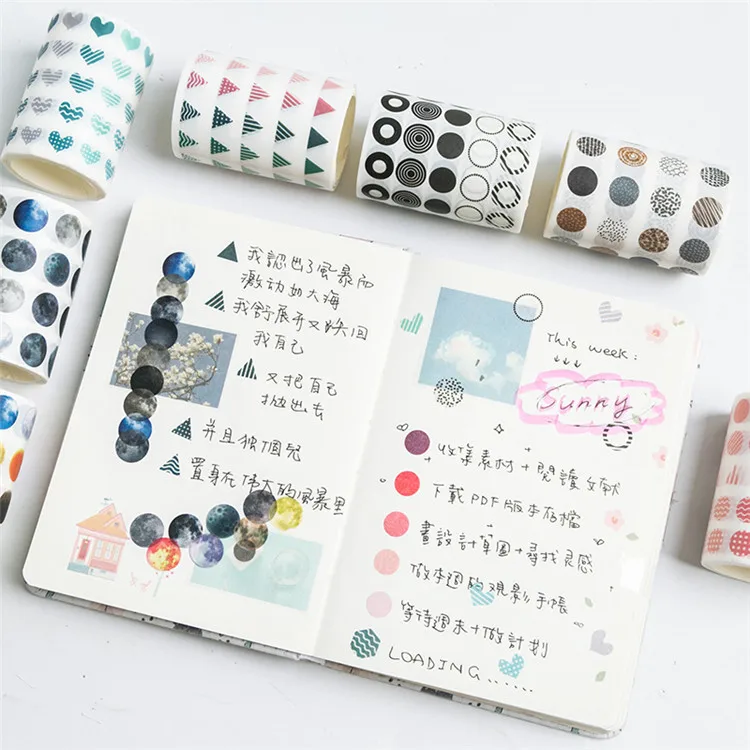 我認出了風暴而
激动如大海
我舒展开又跌回
我自己
又把自己
抛出去
并且独個兒
置身在偉大的風暴里
This week:
Sunny
收集素材+閱讀文献
下載PDF版本存檔
畫設計草圖+尋找灵感
做本週的观影手帳
等待週末+做計划
LOADING......